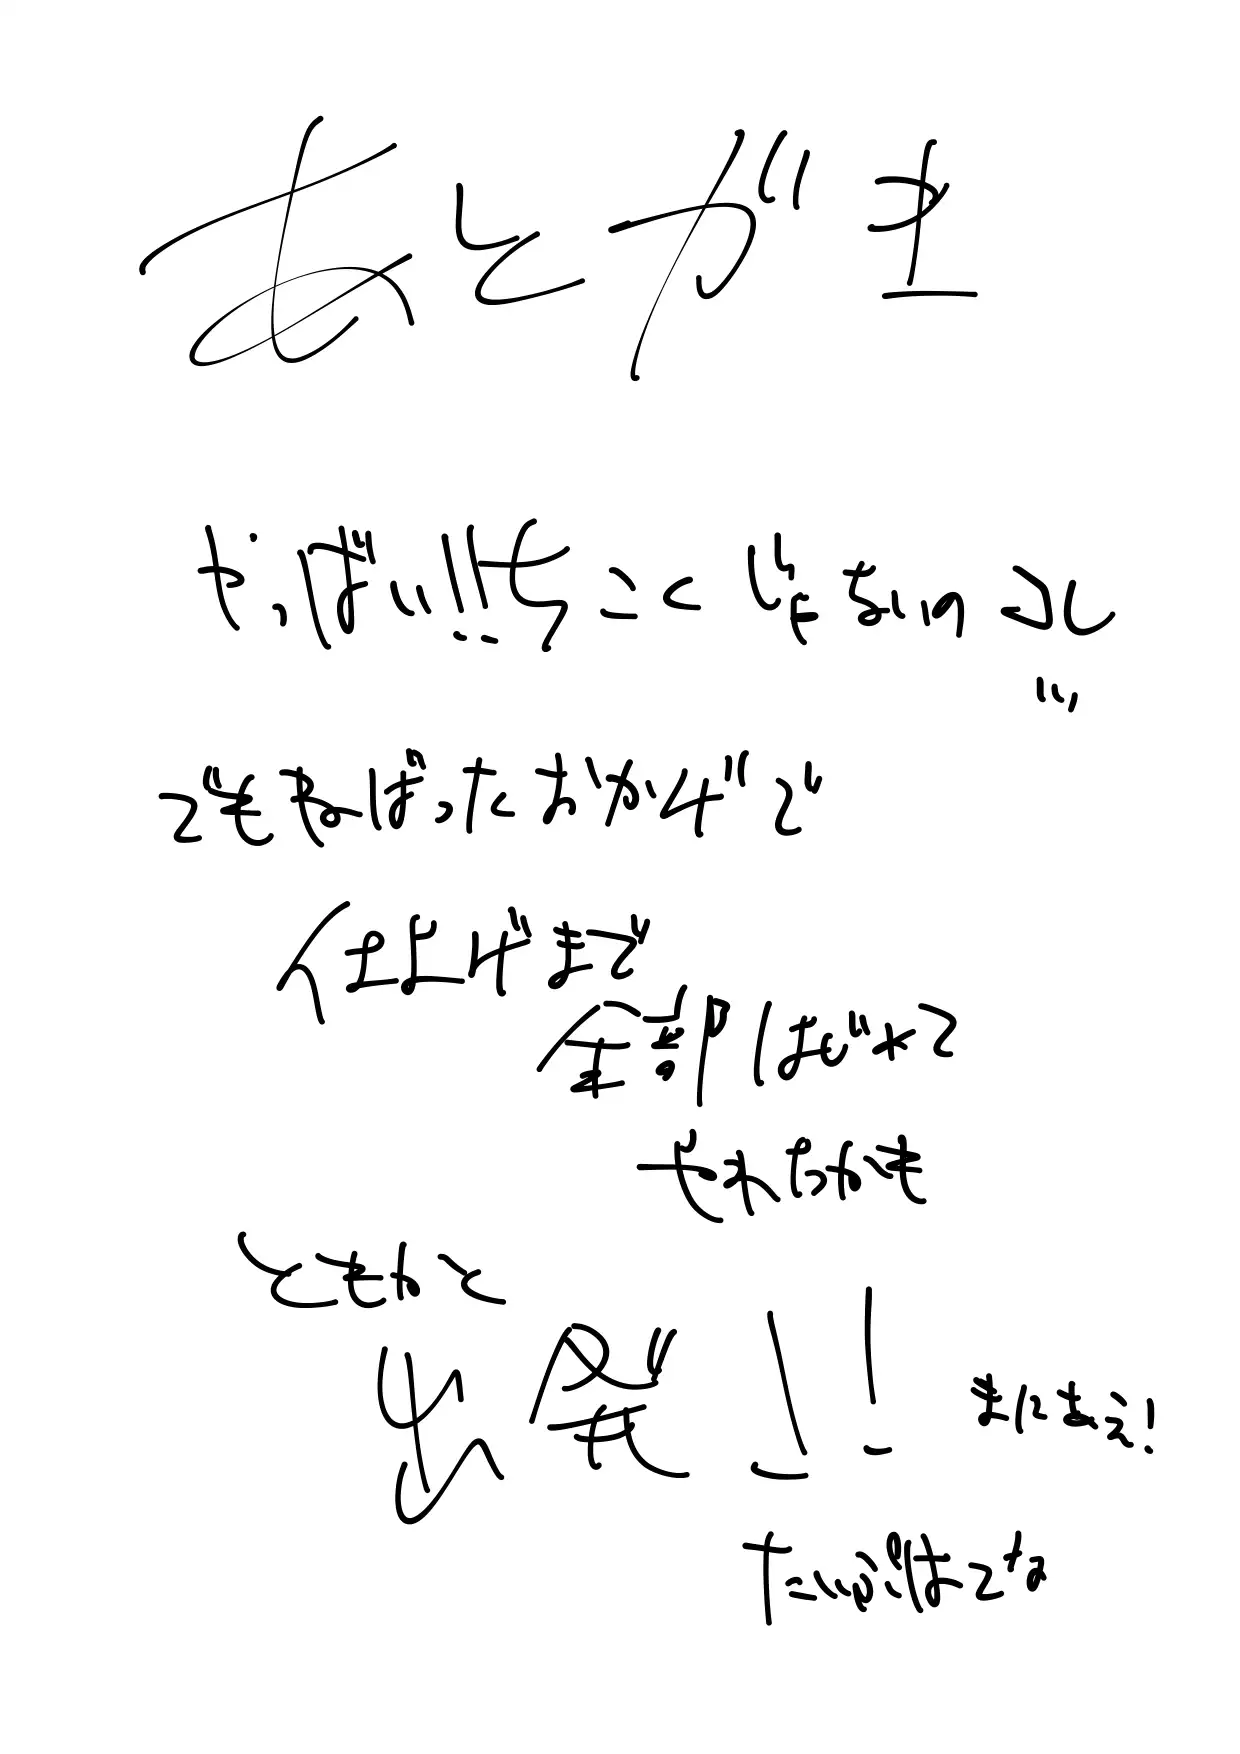 あとがき
やっばい!!ちこくじゃないのコレ
…
でもねばったおかげで
仕上げまで
全部はじめて
やれたかも
ともかと
出発!!
まにあえ!
たいぷはてな